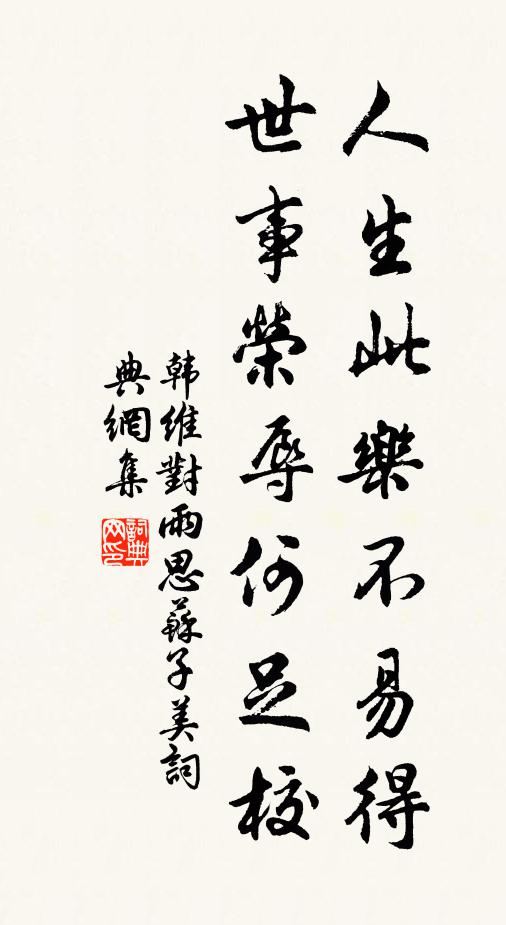 人生此樂不易得
世事榮辱何足校
韩維對雨思蘇子美詞
典網集
詞典网印